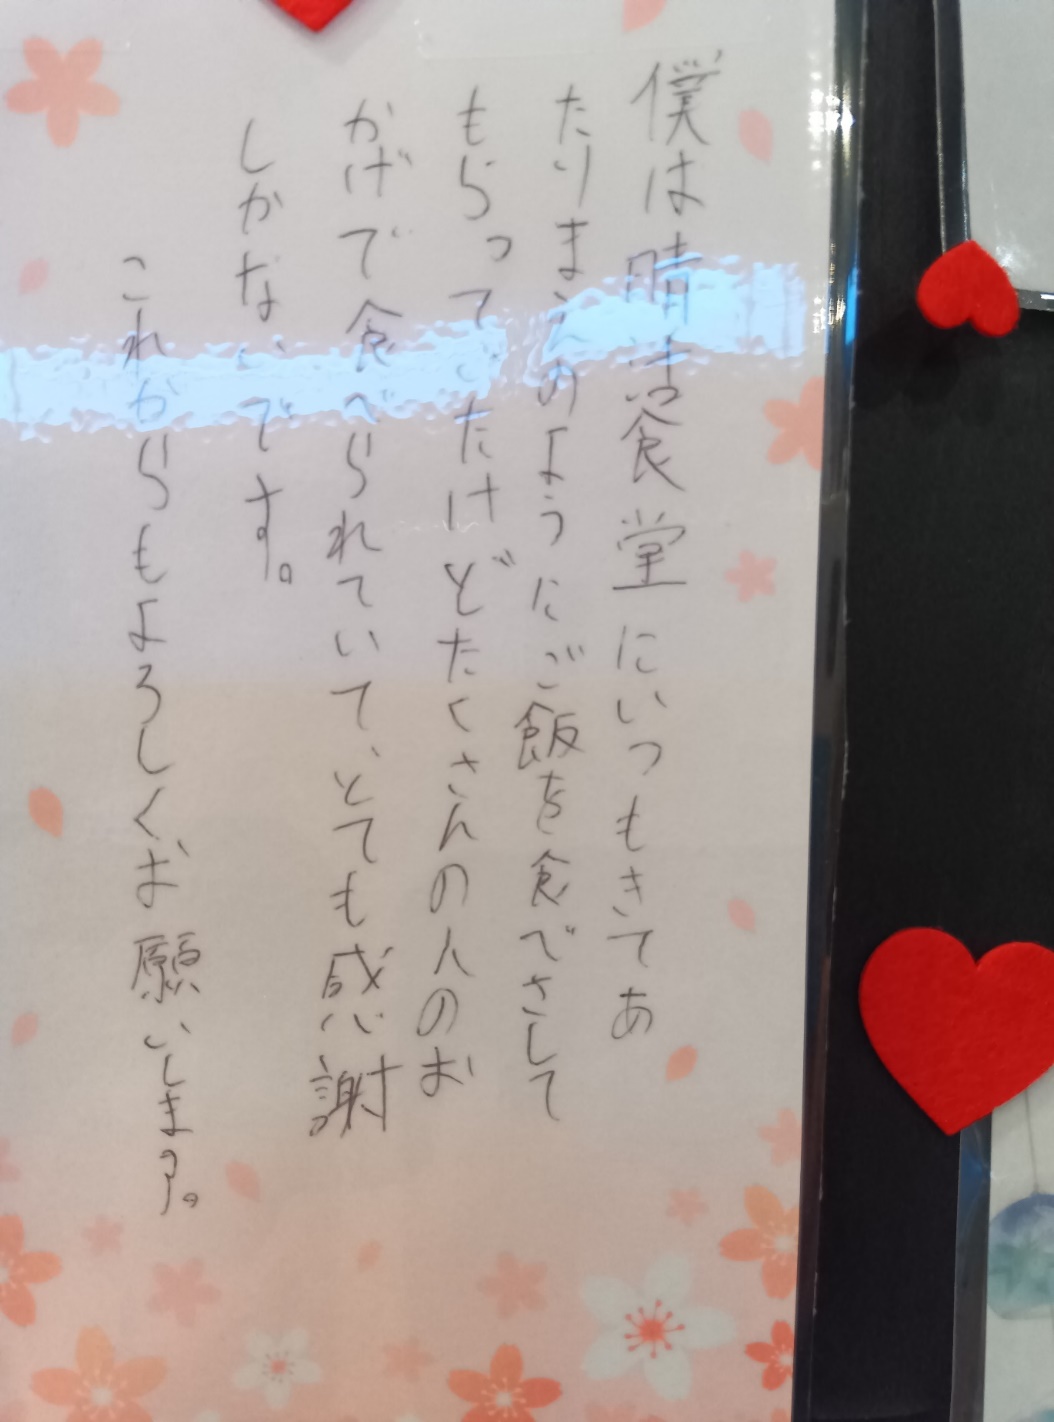 僕は晴活食堂にいつもきてあ
たりまえのようにご飯を食べさして
もらっていたけどたくさんの人のお
かげで食べられていて、とても感謝
しかないです。
これからもよろしくお願いします。